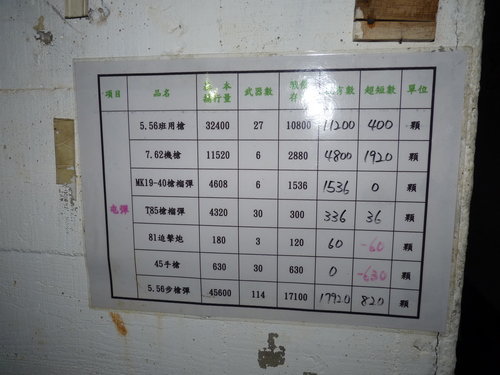 項目 品名 本攜行量 武器數 存 數 超短數 單位
5.56班用槍 32400 27 10800 11200 400 顆
7.62機槍 11520 6 2880 4800 1920 顆
MK19-40槍榴彈 4608 6 1536 1536 0 顆
屯彈 T85槍榴彈 4320 30 300 336 36 顆
81迫擊炮 180 3 120 60 -60 顆
45手槍 630 30 630 0 -630 顆
5.56步槍彈 45600 114 17100 17920 820 顆